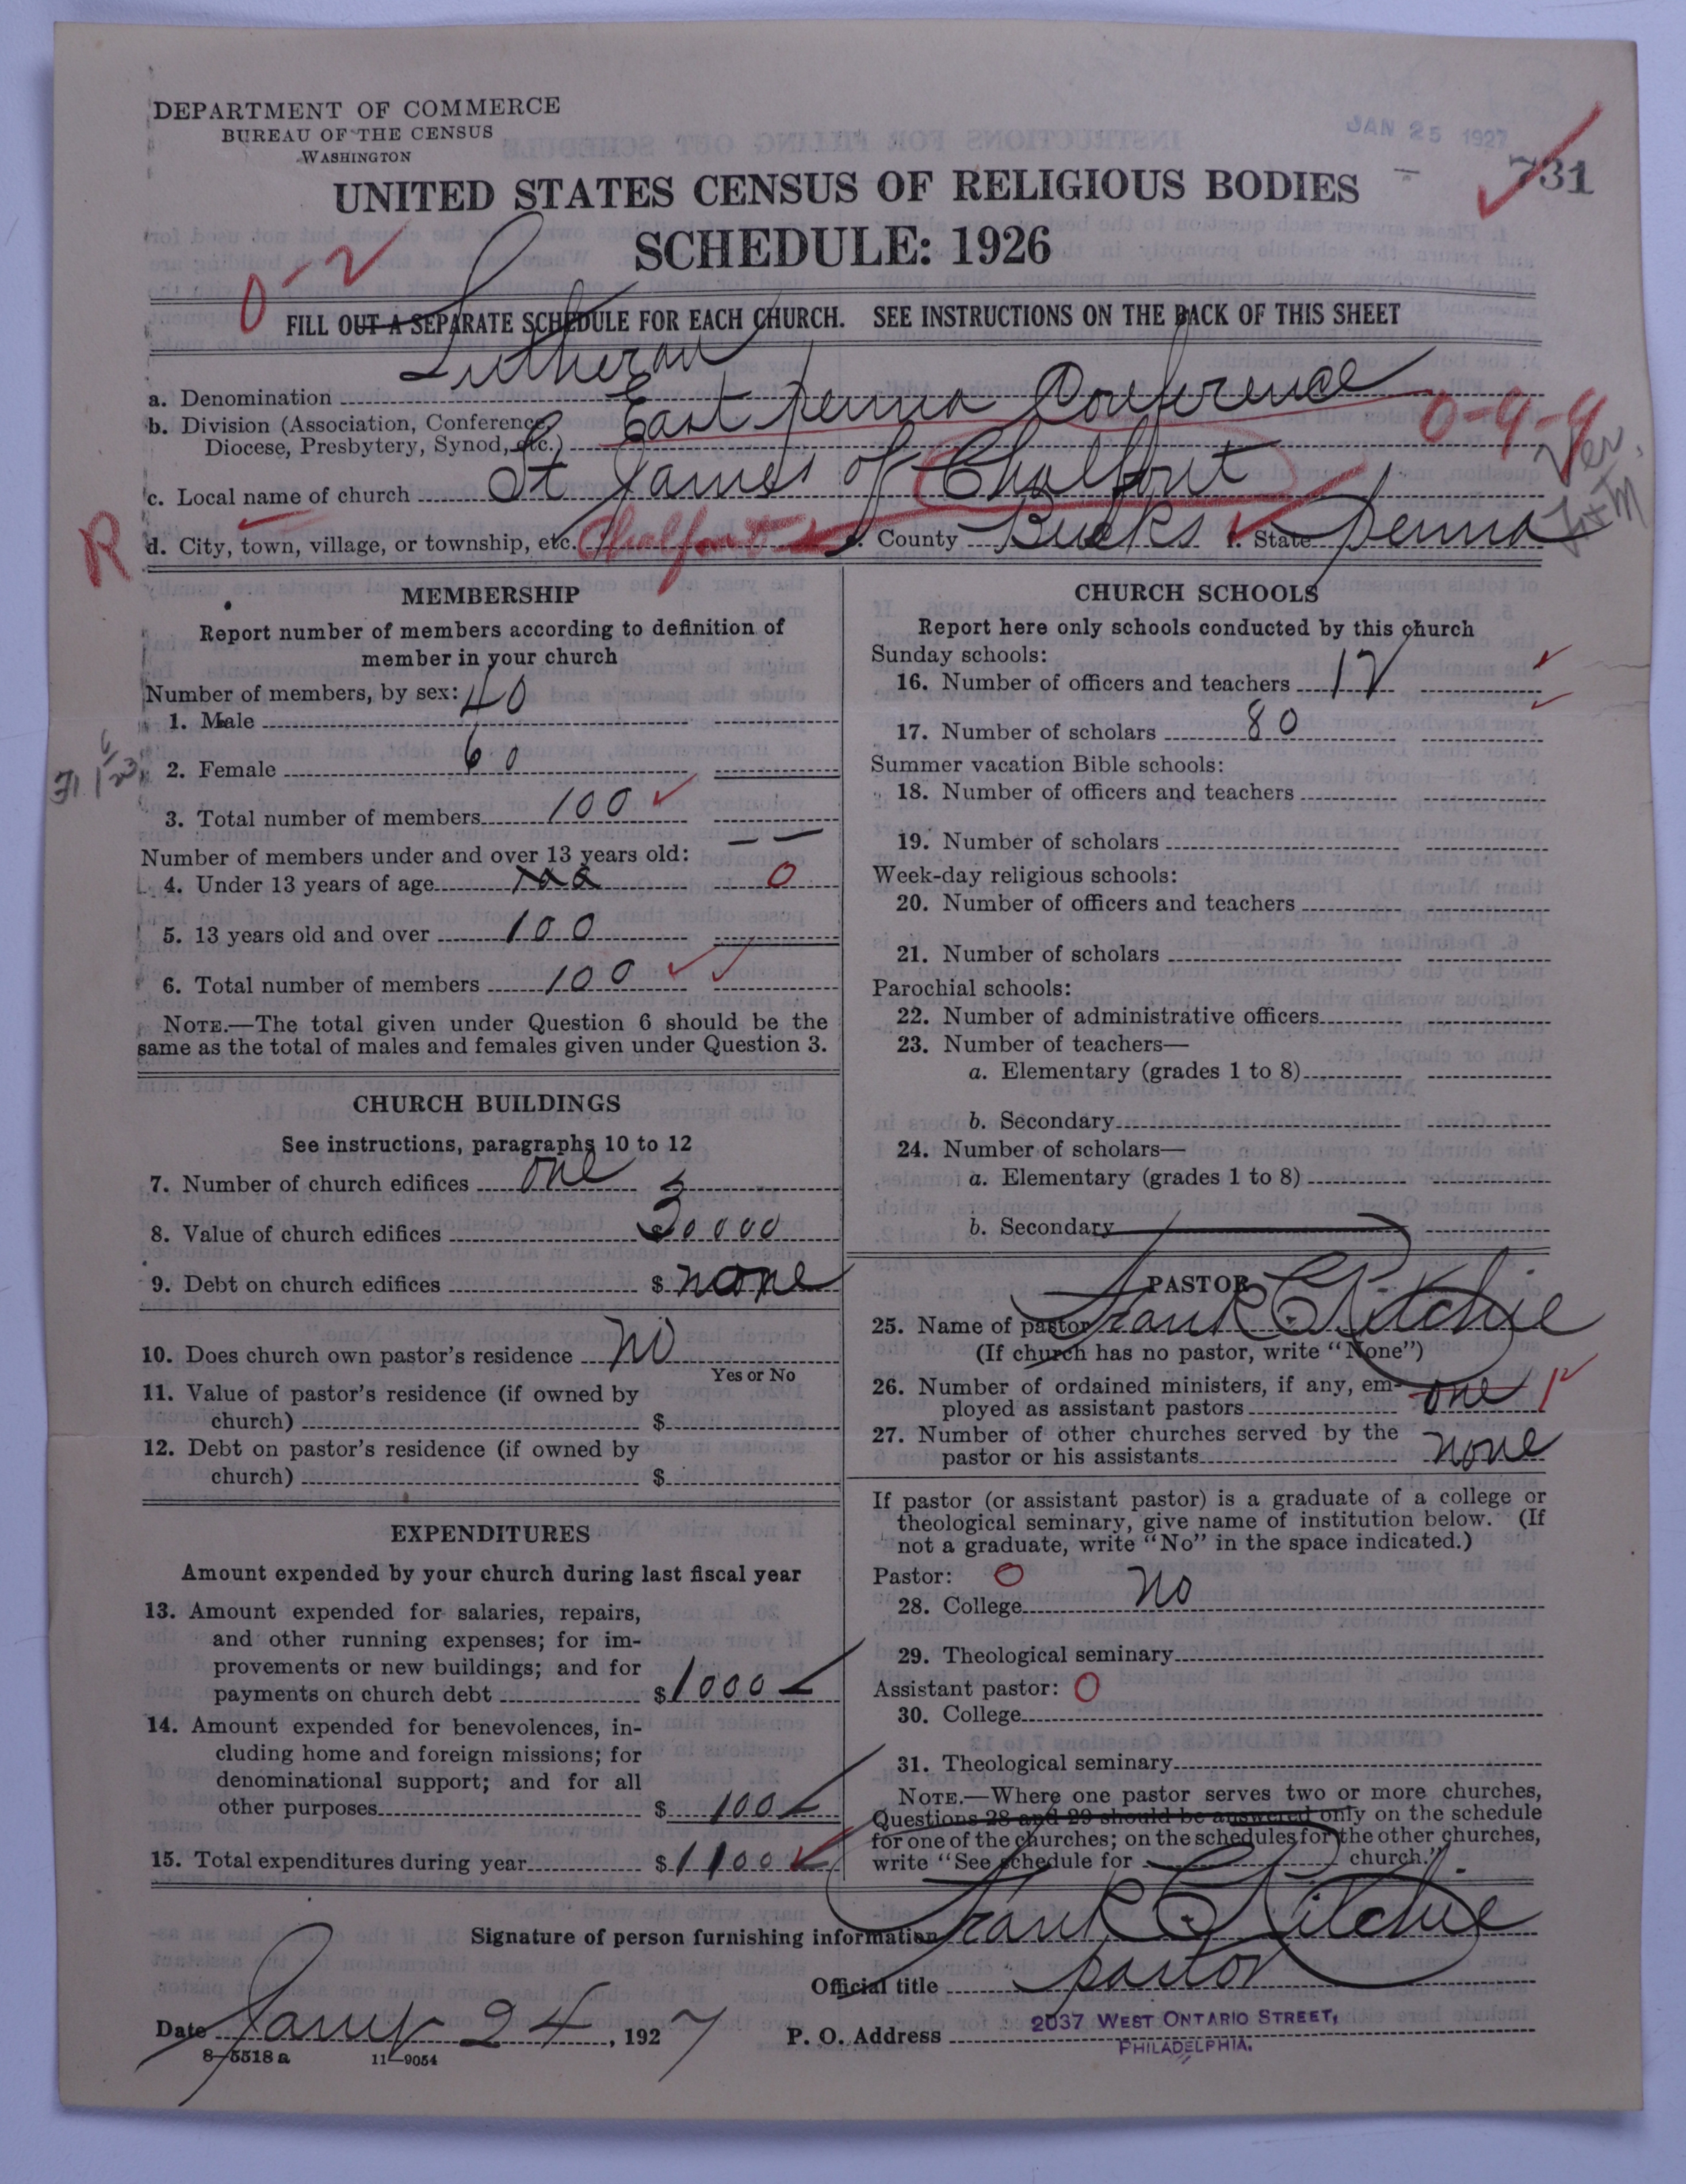 DEPARTMENT OF COMMERCE
BUREAU OF THE CENSUS
WASHINGTON
JAN 25 1927
731
UNITED STATES CENSUS OF RELIGIOUS BODIES
SCHEDULE: 1926
0-2
FILL OUT A SEPARATE SCHEDULE FOR EACH CHURCH. SEE INSTRUCTIONS ON THE BACK OF THIS SHEET
a. Denomination Lutheran
b. Division (Association, Conference, East Penna Conference 0-9-9
Diocese, Presbytery, Synod, etc.)
c. Local name of church St James of Chalfont
R d. City, town, village, or township, etc. Chalfont e. County Bucks f. State Penna
MEMBERSHIP
Report number of members according to definition of
member in your church
Number of members, by sex:
1. Male 40
2. Female 60
3. Total number of members 100
Number of members under and over 13 years old:
4. Under 13 years of age 0
5. 13 years old and over 100
6. Total number of members 100
NOTE.—The total given under Question 6 should be the
same as the total of males and females given under Question 3.
CHURCH BUILDINGS
See instructions, paragraphs 10 to 12
7. Number of church edifices one
8. Value of church edifices $30000
9. Debt on church edifices $ none
10. Does church own pastor's residence No
Yes or No
11. Value of pastor's residence (if owned by
church) $
12. Debt on pastor's residence (if owned by
church) $
EXPENDITURES
Amount expended by your church during last fiscal year
13. Amount expended for salaries, repairs,
and other running expenses; for im-
provements or new buildings; and for
payments on church debt $1000
14. Amount expended for benevolences, in-
cluding home and foreign missions; for
denominational support; and for all
other purposes $ 100
15. Total expenditures during year $1100
CHURCH SCHOOLS
Report here only schools conducted by this church
Sunday schools:
16. Number of officers and teachers 12
17. Number of scholars 80
Summer vacation Bible schools:
18. Number of officers and teachers
19. Number of scholars
Week-day religious schools:
20. Number of officers and teachers
21. Number of scholars
Parochial schools:
22. Number of administrative officers
23. Number of teachers—
a. Elementary (grades 1 to 8)
b. Secondary
24. Number of scholars—
a. Elementary (grades 1 to 8)
b. Secondary
PASTOR
25. Name of pastor Frank C Ritchie
(If church has no pastor, write "None")
26. Number of ordained ministers, if any, em-
ployed as assistant pastors one
27. Number of other churches served by the
pastor or his assistants none
If pastor (or assistant pastor) is a graduate of a college or
theological seminary, give name of institution below. (If
not a graduate, write "No" in the space indicated.)
Pastor: O
28. College No
29. Theological seminary
Assistant pastor: O
30. College
31. Theological seminary
NOTE.—Where one pastor serves two or more churches,
Questions 28 and 29 should be answered only on the schedule
for one of the churches; on the schedules for the other churches,
write "See schedule for church."
Signature of person furnishing information Frank C Ritchie
Official title pastor
Date Jany 24, 1927 P. O. Address 2037 WEST ONTARIO STREET,
PHILADELPHIA.
8-5518a 11-9054